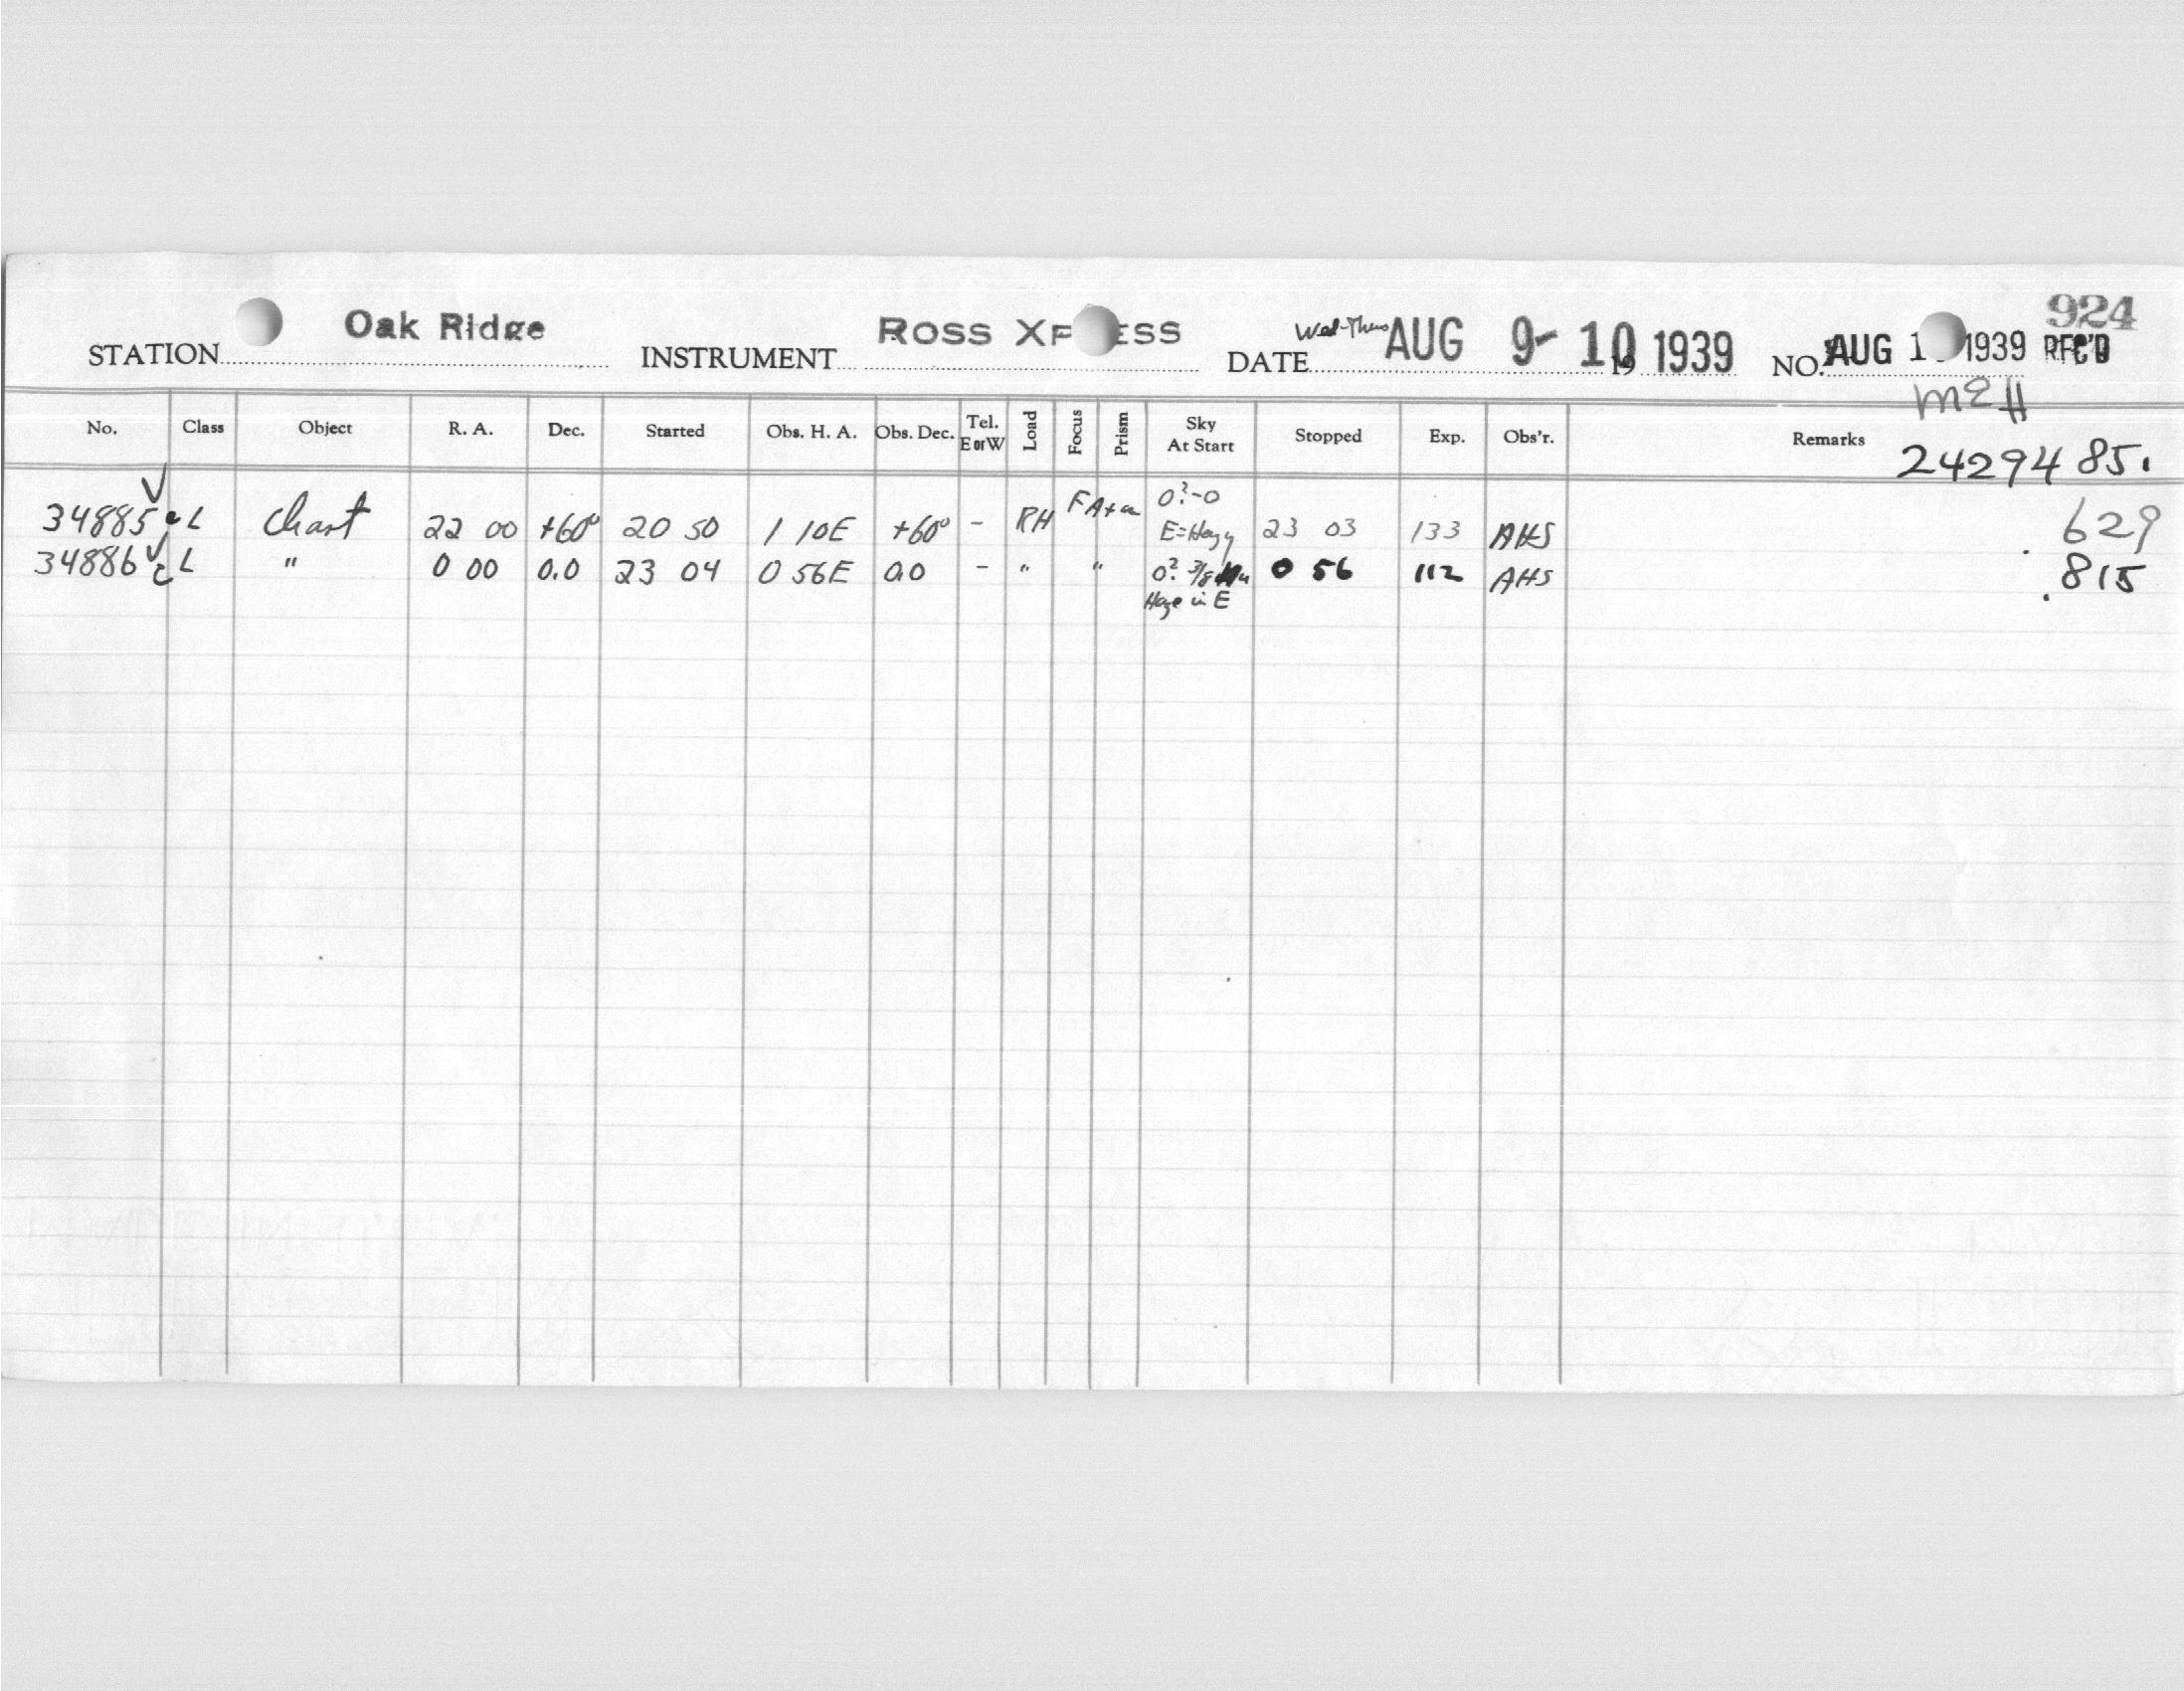 924
STATION Oak Ridge INSTRUMENT ROSS XP ESS DATE Wed-Thurs AUG 9-10 19 1939 NO. AUG 1 1939 REC'D
McH
No. Class Object R. A. Dec. Started Obs. H. A. Obs. Dec. Tel. E or W Load Focus Prism Sky At Start Stopped Exp. Obs'r. Remarks
2429485.
34885 c L Chart 22 00 +60° 20 50 1 10E +60° - RH F 0?-0 E=Hazy 23 03 133 AHS .629
34886 c L " 0 00 0.0 23 04 0 56E 0.0 - " " 0? 3/8 0 56 112 AHS .815
Haze in E